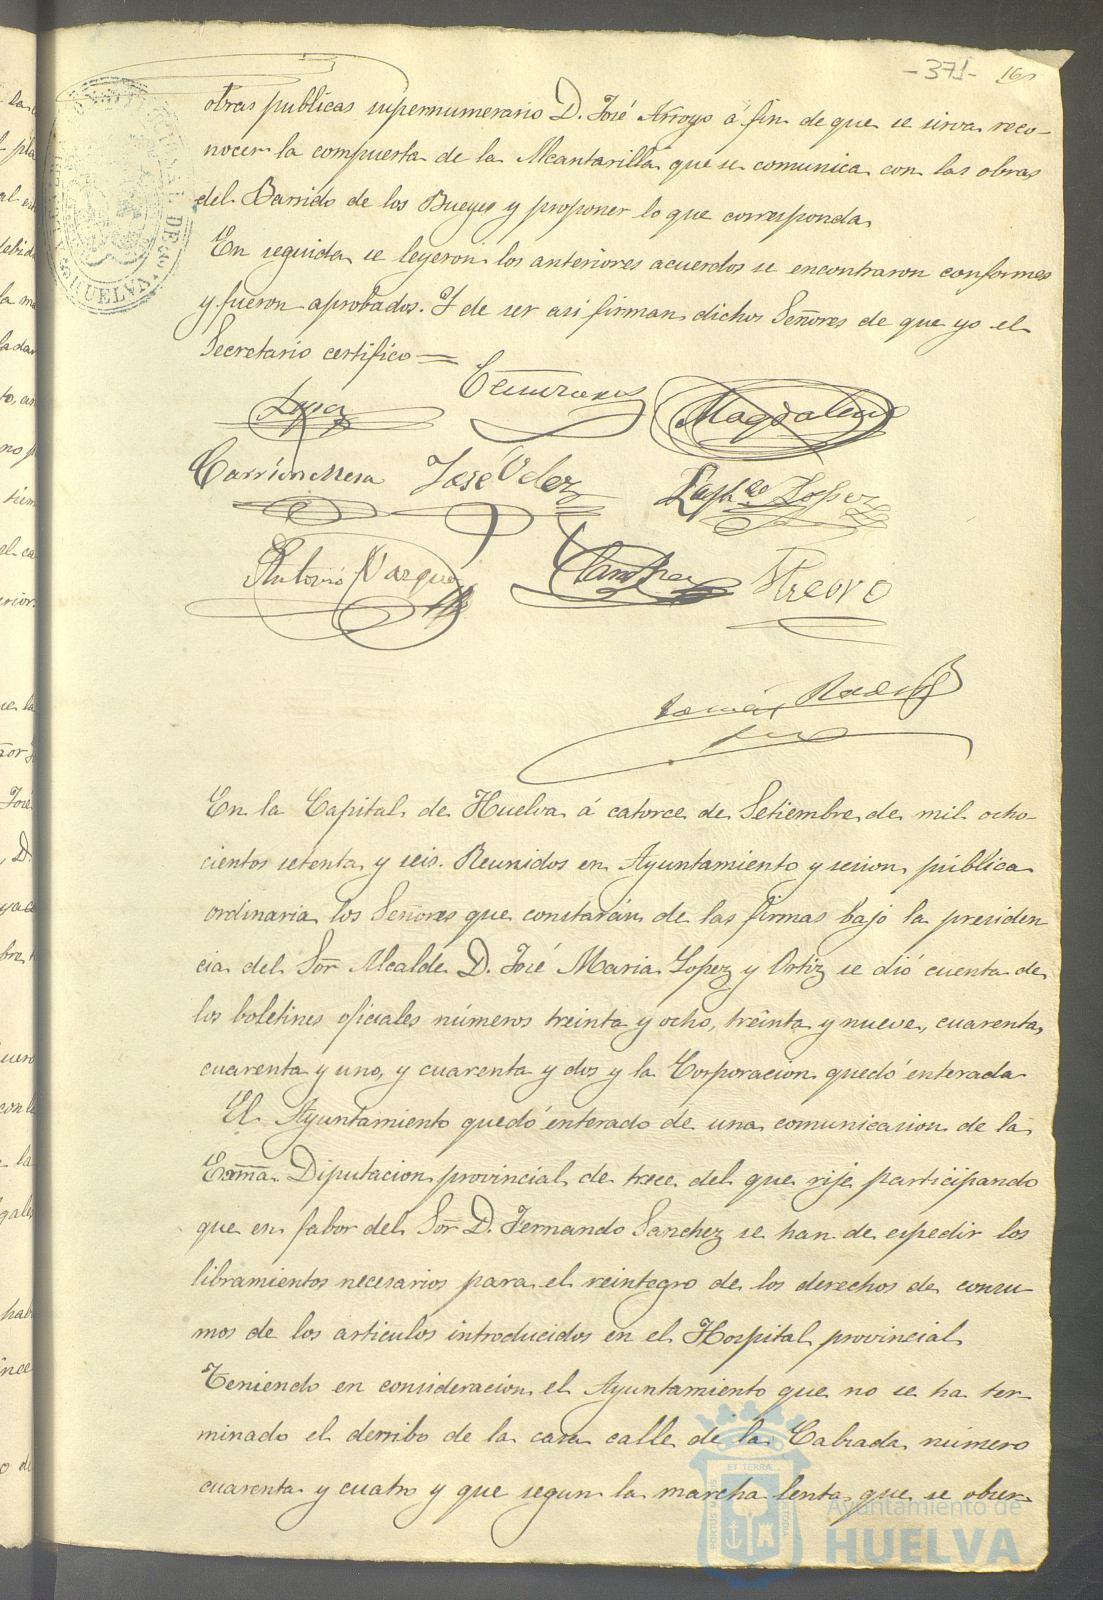 -371- 161
obras publicas supernumerario D. José Arroyo á fin de que se sirva reco-
nocer la compuerta de la Alcantarilla que se comunica con las obras
del Barrido de los Bueyes y proponer lo que corresponda
En seguida se leyeron los anteriores acuerdos se encontraron conformes
y fueron aprobados. Y de ser asi firman dichos Señores de que yo el
Secretario certifico=
Lopez
Magdalena
Carrión Mesa José Velez Lopez
Antonio Vazquez
Tomás
En la Capital de Huelva á catorce de Setiembre de mil ocho-
cientos setenta y seis. Reunidos en Ayuntamiento y sesion pública
ordinaria los Señores que constarán de las firmas bajo la presiden
cia del Sor Alcalde D. José Maria Lopez y Ortiz se dió cuenta de
los boletines oficiales números treinta y ocho, treinta y nueve, cuarenta,
cuarenta y uno, y cuarenta y dos y la Corporacion quedó enterada
El Ayuntamiento quedó enterado de una comunicasion de la
Exma. Diputacion provincial de trece del que rije participando
que en fabor del Sor D. Fernando Sanchez se han de espedir los
libramientos necesarios para el reintegro de los derechos de consu-
mos de los articulos introducidos en el Hospital provincial
Teniendo en consideracion el Ayuntamiento que no se ha ter-
minado el derribo de la casa calle de la Calzada número
cuarenta y cuatro y que segun la marcha lenta que se obser-
Ayuntamiento de
HUELVA